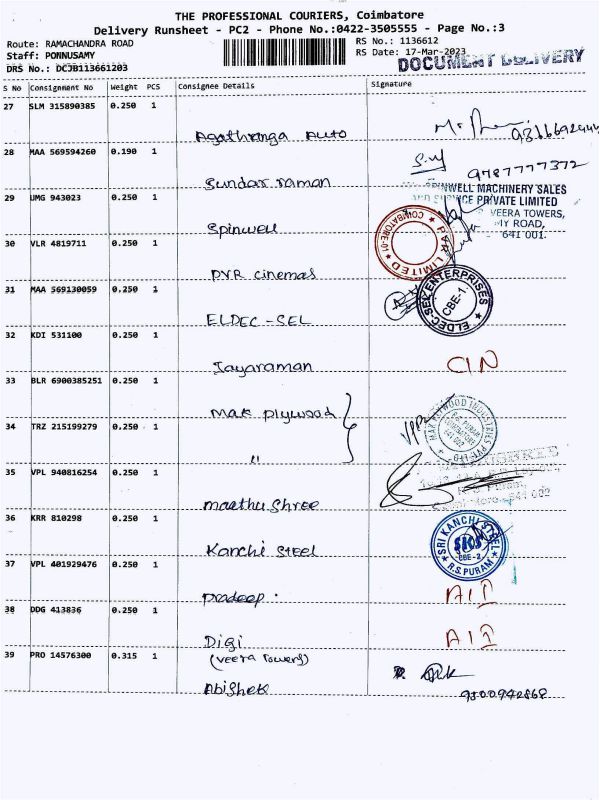 THE PROFESSIONAL COURIERS, Coimbatore
Delivery Runsheet - PC2 - Phone No.:0422-3505555 - Page No.:3
Route: RAMACHANDRA ROAD
RS No.: 1136612
Staff: PONNUSAMY
RS Date: 17-Mar-2023
DRS No.: DCJB113661203
DOCUMENT DELIVERY
S No Consignment No Weight PCS Consignee Details Signature
27 SLM 315890385 0.250 1
Agathranga Auto
28 MAA 569594260 0.190 1
9787777372
Sundar raman
29 UMG 943023 0.250 1
SPINWELL MACHINERY SALES
AND SERVICE PRIVATE LIMITED
VEERA TOWERS,
MY ROAD,
641 001.
Spinwell
30 VLR 4819711 0.250 1
COIMBATORE-01 PVR LIMITED
PVR cinemas
31 MAA 569130059 0.250 1
ELDEC-SEL ENTERPRISES
CBE-1.
ELDEC-SEL
32 KDI 531100 0.250 1
Jayaraman
33 BLR 6900385251 0.250 1
Mak plywood
MAK PLYWOOD INDUSTRIES PVT.
R.S. PURAM
COIMBATORE
641 002
34 TRZ 215199279 0.250 1
"
35 VPL 940816254 0.250 1
641 002
Maethu Shree
36 KRR 810298 0.250 1
SRI KANCHI STEEL
SKS
CBE-2
R.S.PURAM
Kanchi Steel
37 VPL 401929476 0.250 1
Pradeep.
38 DDG 413836 0.250 1
Digi
(veera Towers)
39 PRO 14576300 0.315 1
Abishek